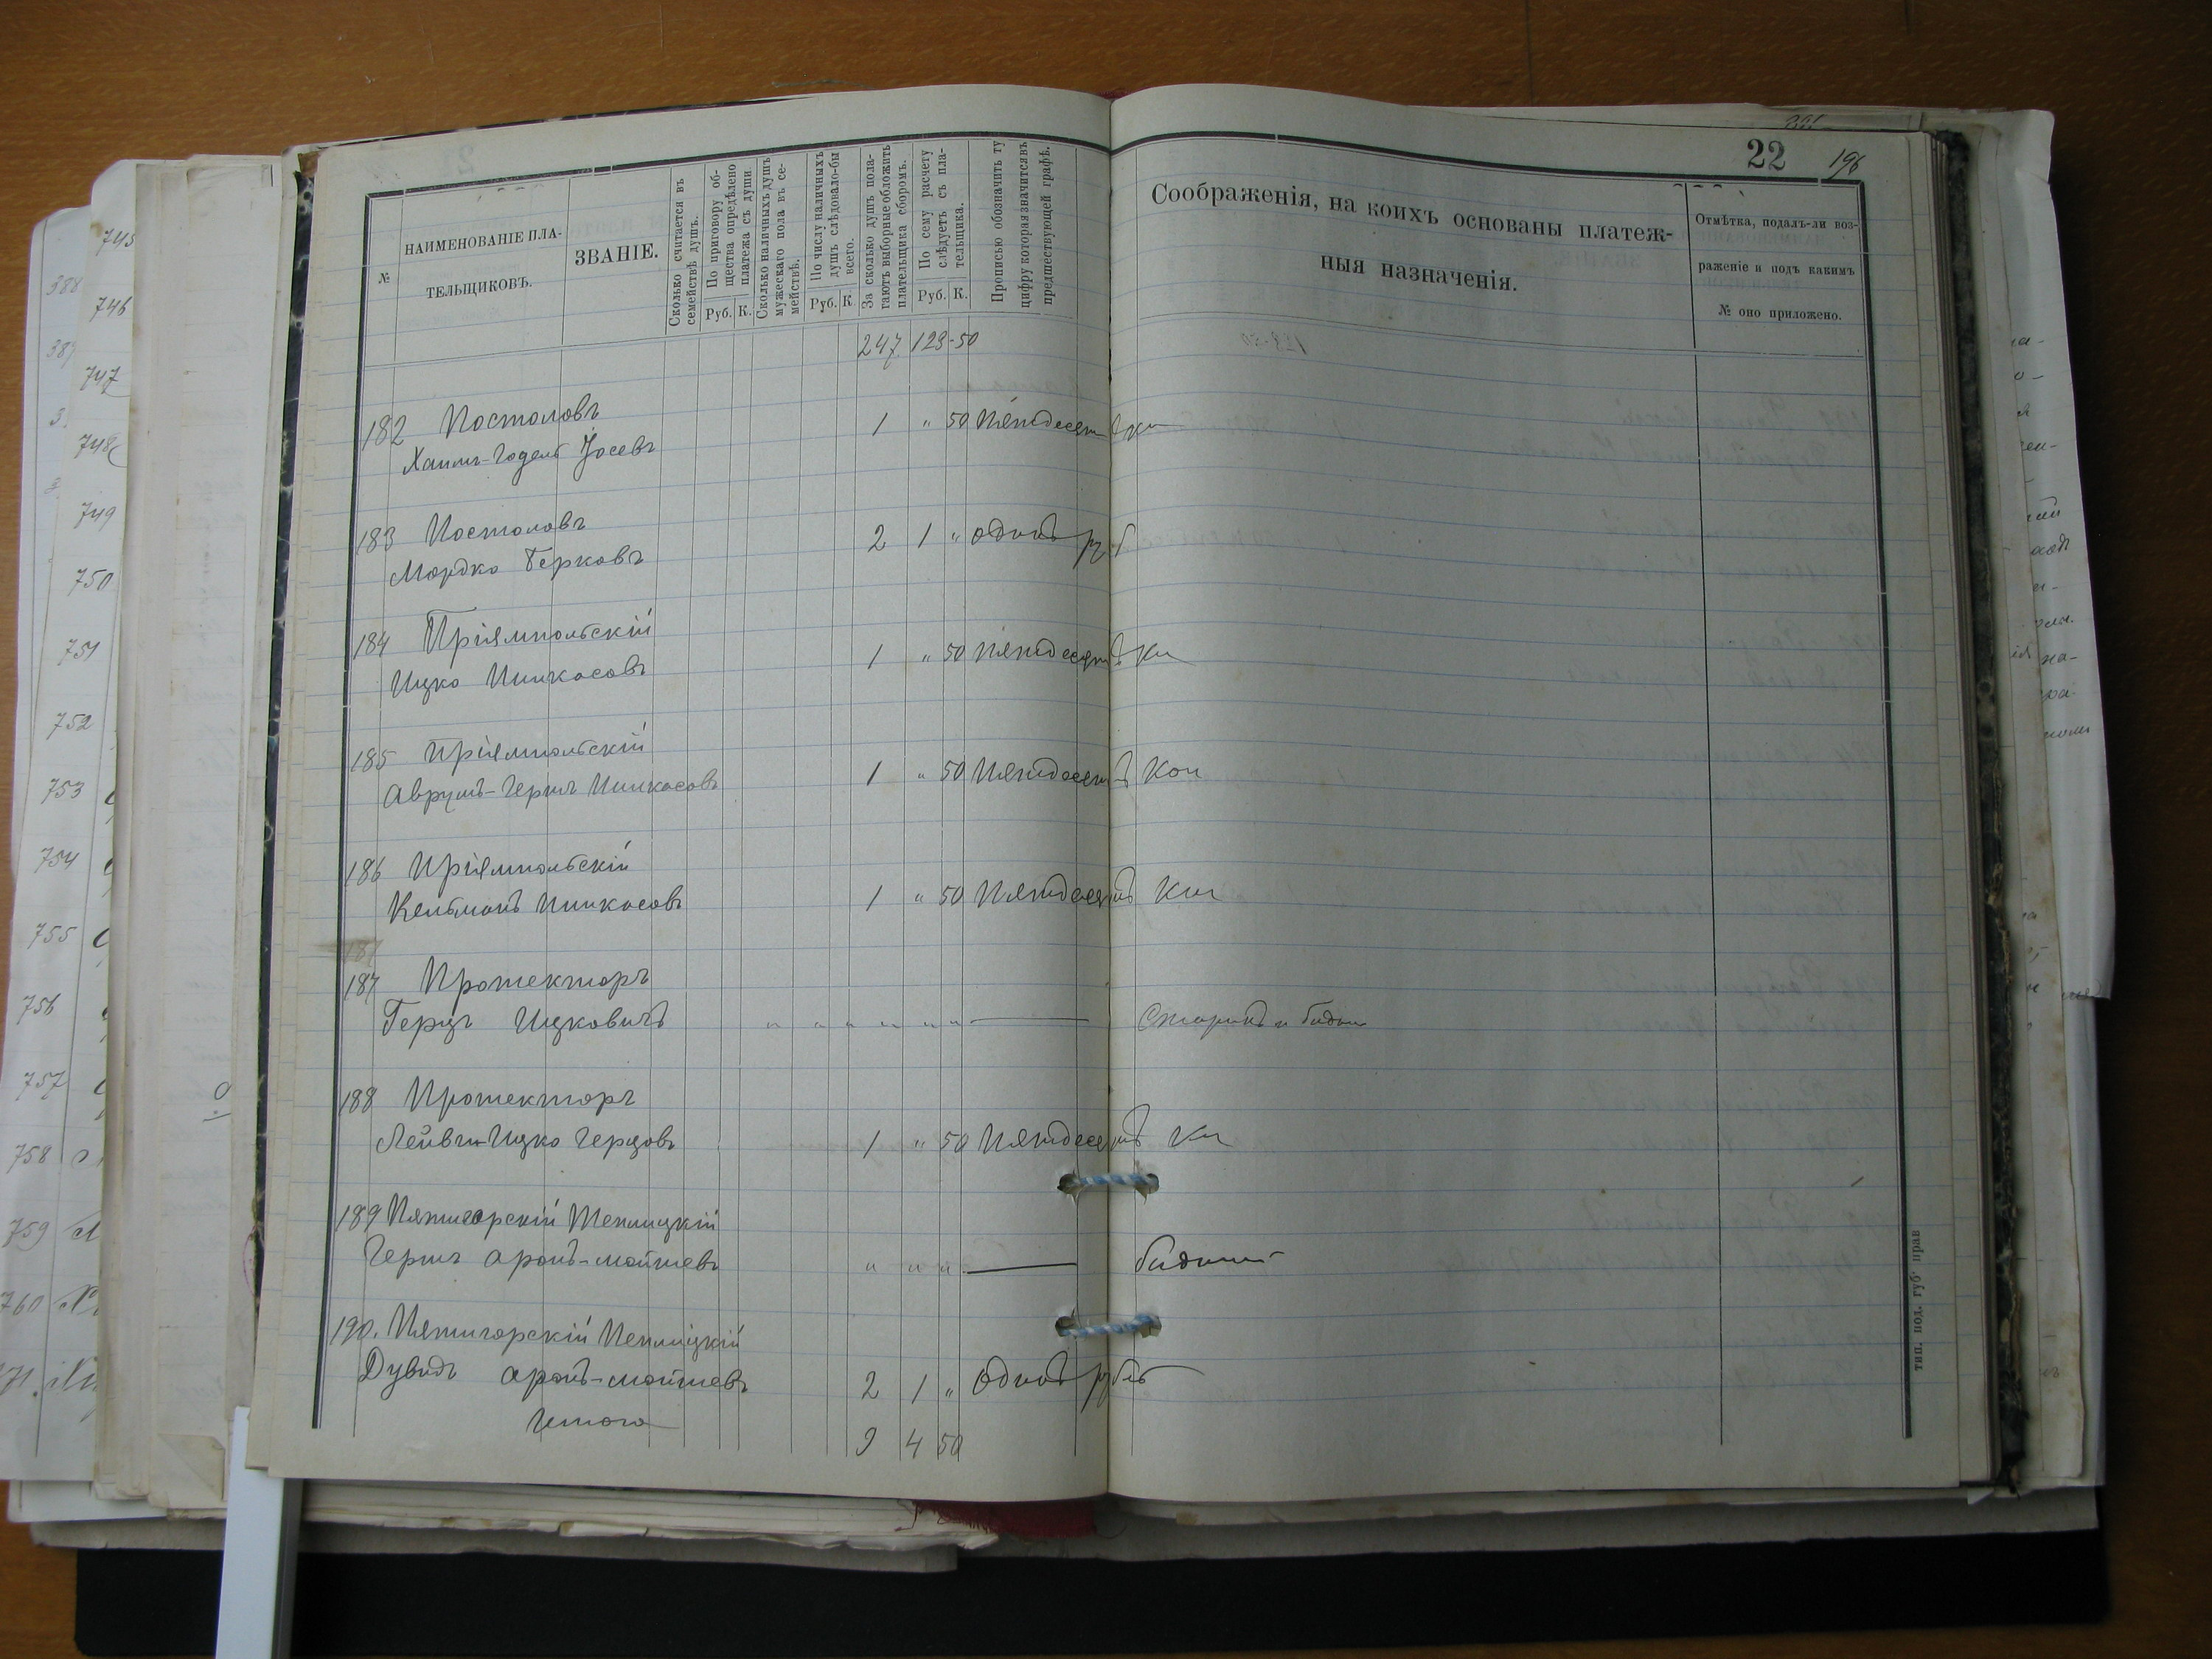 22 196
№
НАИМЕНОВАНІЕ ПЛА-
ТЕЛЬЩИКОВЪ.
ЗВАНІЕ.
Сколько считается въ
семействѣ душъ.
По приговору об-
щества опредѣлено
платежа съ души
Руб. К.
Сколько наличныхъ душъ
мужескаго пола въ се-
мействѣ.
По числу наличныхъ
душъ слѣдовало-бы
всего.
Руб. К.
За сколько душъ пола-
гаютъ выборные обложить
плательщика сборомъ.
По сему расчету
слѣдуетъ съ пла-
тельщика.
Руб. К.
Прописью обозначить ту
цифру которая значится въ
предшествующей графѣ.
Соображенія, на коихъ основаны платеж-
ныя назначенія.
Отмѣтка, подалъ-ли воз-
раженіе и подъ какимъ
№ оно приложено.
247 123-50
182 Постоловъ
Хаимъ-Годель Іосевъ 1 " 50 Пятдесятъ кп
183 Постоловъ
Мордко Берковъ 2 1 " одинъ руб
184 Пріямпольскій
Ицко Пинкасовъ 1 " 50 пятдесятъ кп
185 Пріямпольскій
Аврумъ-Гершъ Пинкасовъ 1 " 50 Пятдесятъ коп
186 Пріямпольскій
Кельманъ Пинкасовъ 1 " 50 Пятдесятъ Коп
187 Протекторъ
Герцъ Ицковичъ " " " " " " " Старикъ и бидни
188 Протекторъ
Лейви-Ицко Герцовъ 1 " 50 Пятдесятъ Кп
189 Пятигорскій Теплицкій
Гершъ Аронъ-Мошиевъ " " " бидний
190. Пятигорскій Теплицкій
Дувидъ Аронъ-Мошиевъ 2 1 " Одинъ рубль
Итого 9 4 50
тип. под. губ. прав
745
388
746
387
747
748
749
750
751
752
753
754
755
756
757
758
759
760